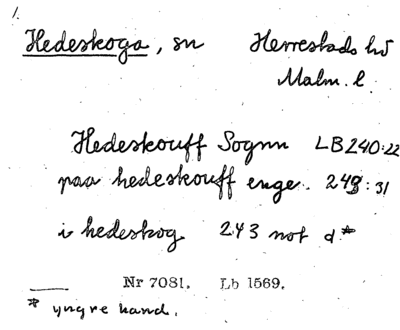 1.
Hedeskoga, sn Herrestads hd
Malm. l.
Hedeskouff Sognn LB 240:22
paa hedeskouff enge. 243:31
i hedeskog 243 not d*
Nr 7081. Lb 1569.
* yngre hand.